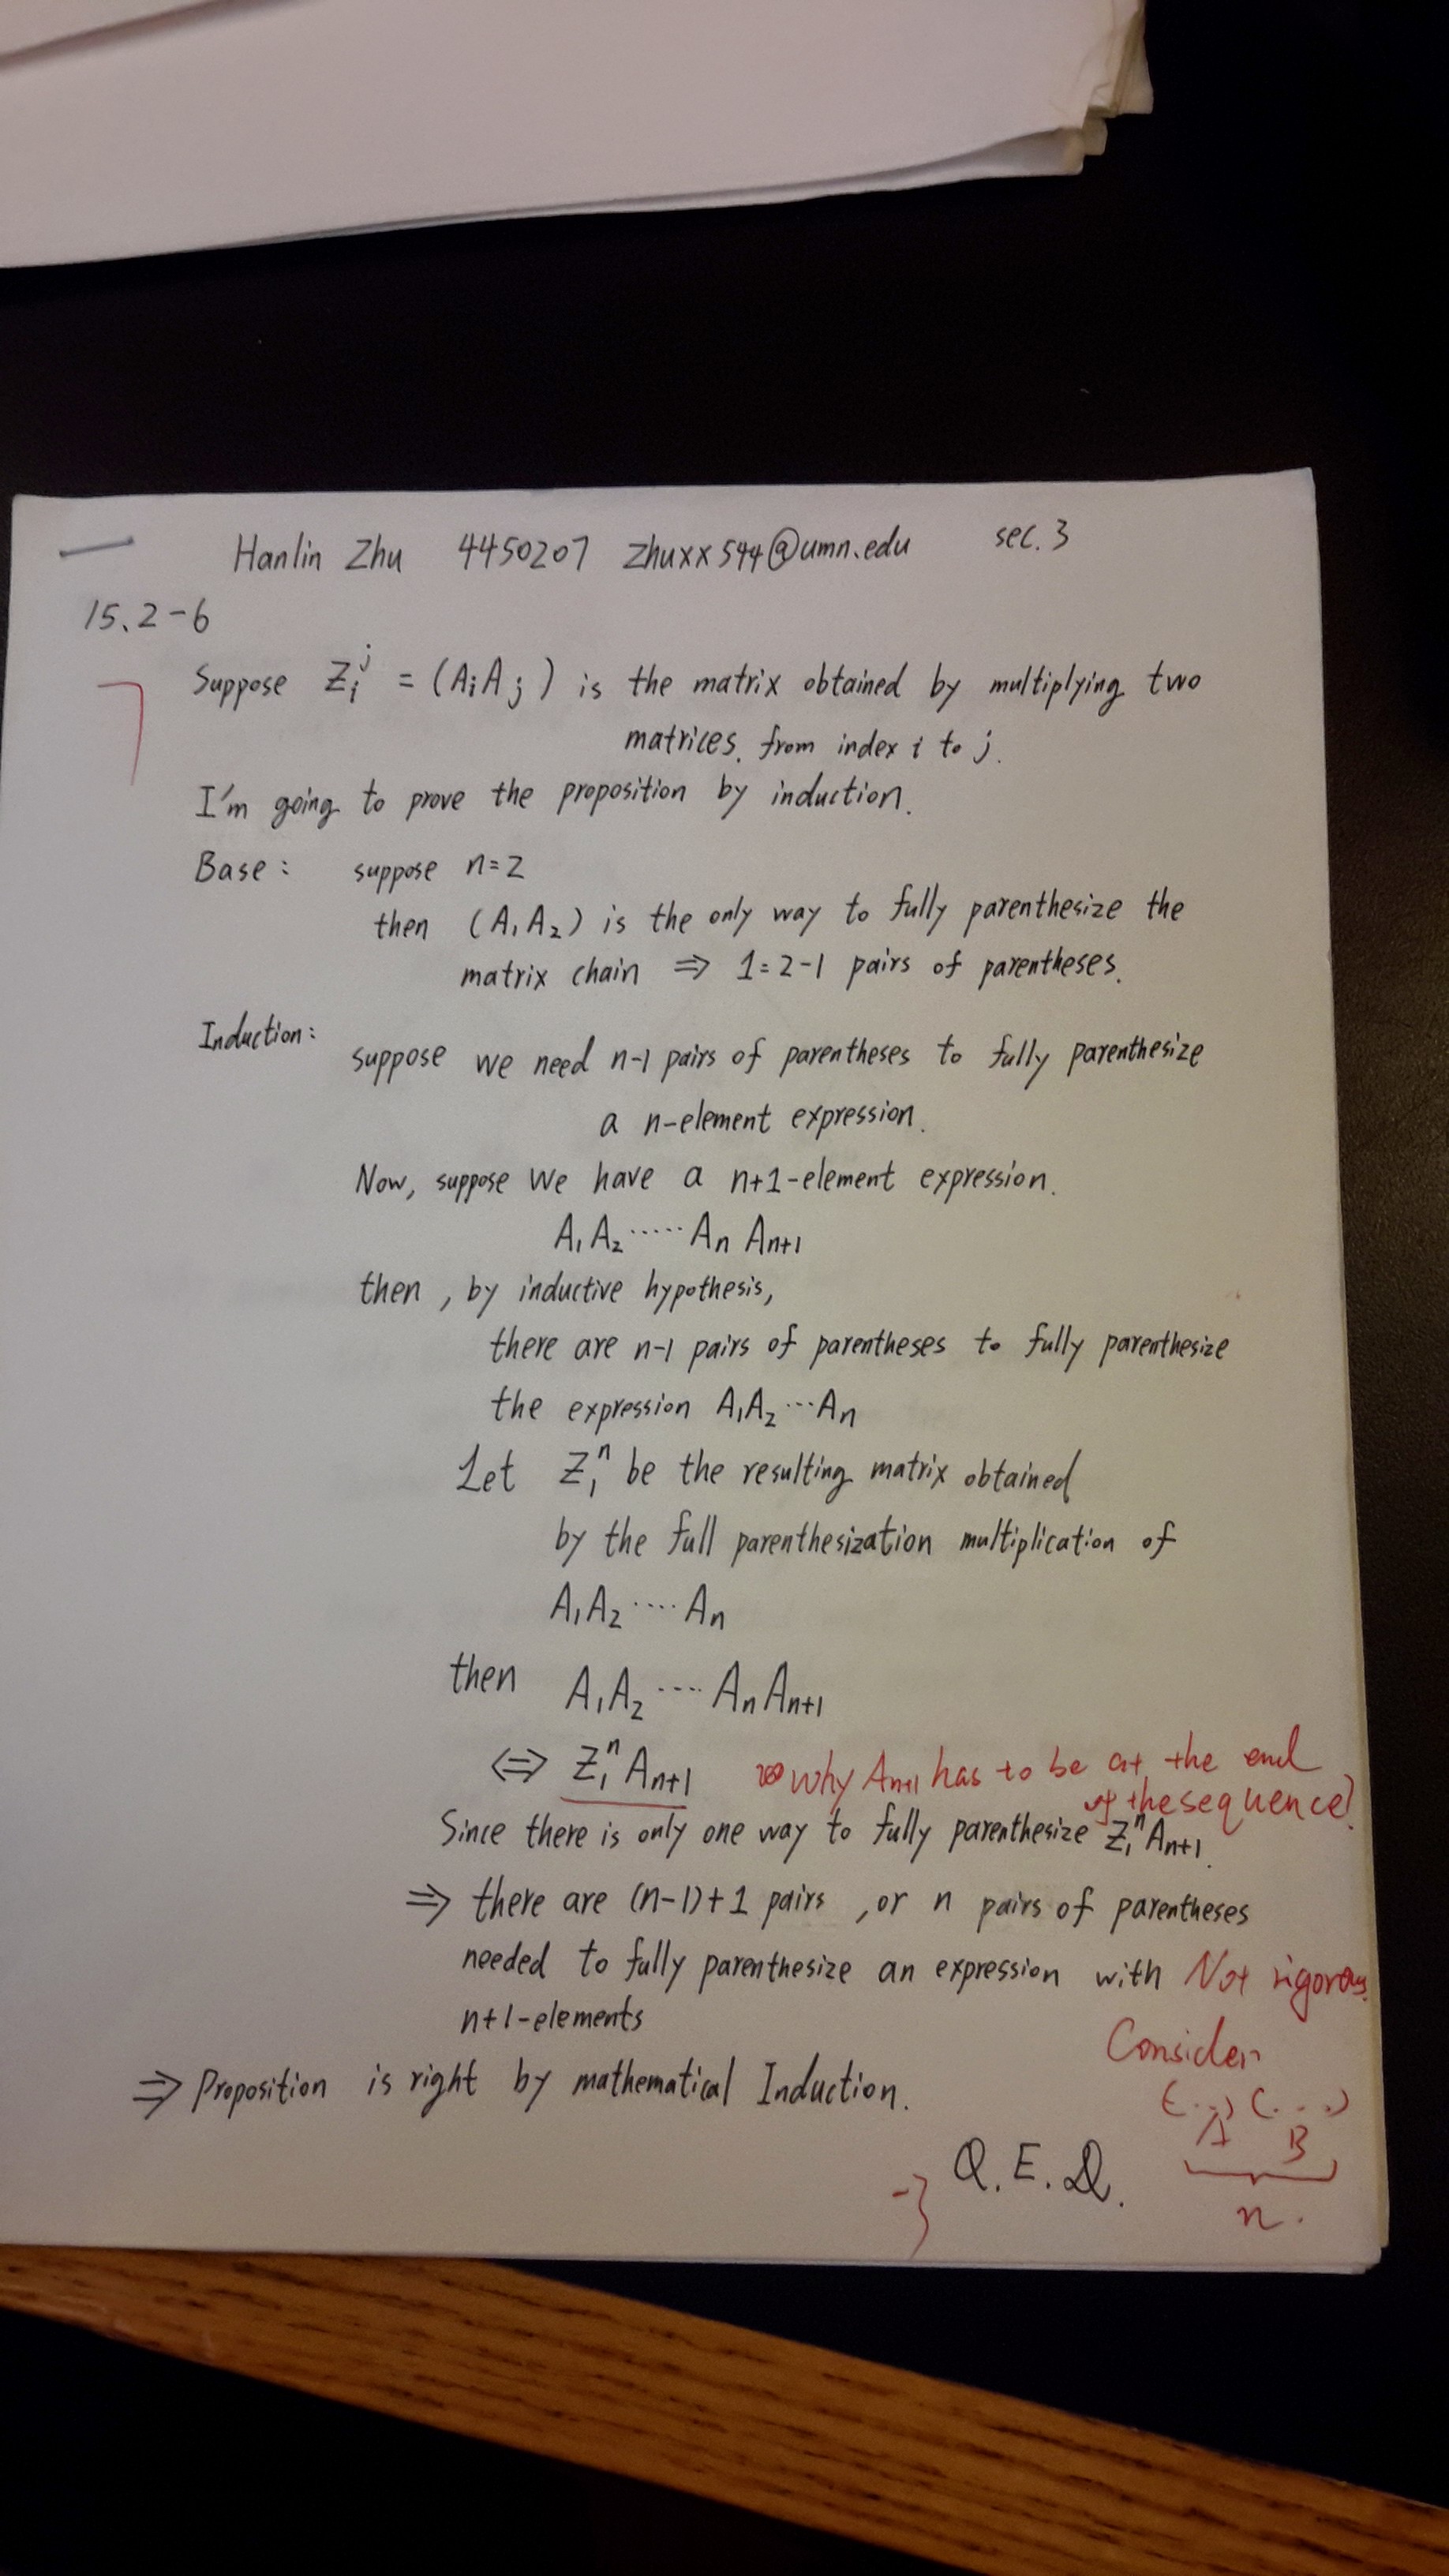 Hanlin Zhu 4450207 zhuxx544@umn.edu sec.3
15.2-6
7
Suppose Z_i^j = (A_i A_j) is the matrix obtained by multiplying two
matrices. from index i to j.
I'm going to prove the proposition by induction.
Base: suppose n=2
then (A_1 A_2) is the only way to fully parenthesize the
matrix chain ⇒ 1=2-1 pairs of parentheses.
Induction:
suppose we need n-1 pairs of parentheses to fully parenthesize
a n-element expression.
Now, suppose we have a n+1-element expression.
A_1 A_2 ····· A_n A_{n+1}
then, by inductive hypothesis,
there are n-1 pairs of parentheses to fully parenthesize
the expression A_1 A_2 ··· A_n
Let Z_1^n be the resulting matrix obtained
by the full parenthesization multiplication of
A_1 A_2 ···· A_n
then A_1 A_2 ···· A_n A_{n+1}
⇔ Z_1^n A_{n+1} why A_{n+1} has to be at the end
of the sequence?
Since there is only one way to fully parenthesize Z_1^n A_{n+1}.
⇒ there are (n-1)+1 pairs, or n pairs of parentheses
needed to fully parenthesize an expression with Not rigorous.
n+1-elements
Consider
⇒ Proposition is right by mathematical Induction.
(...) (...)
A B
Q.E.D.
-3
n.